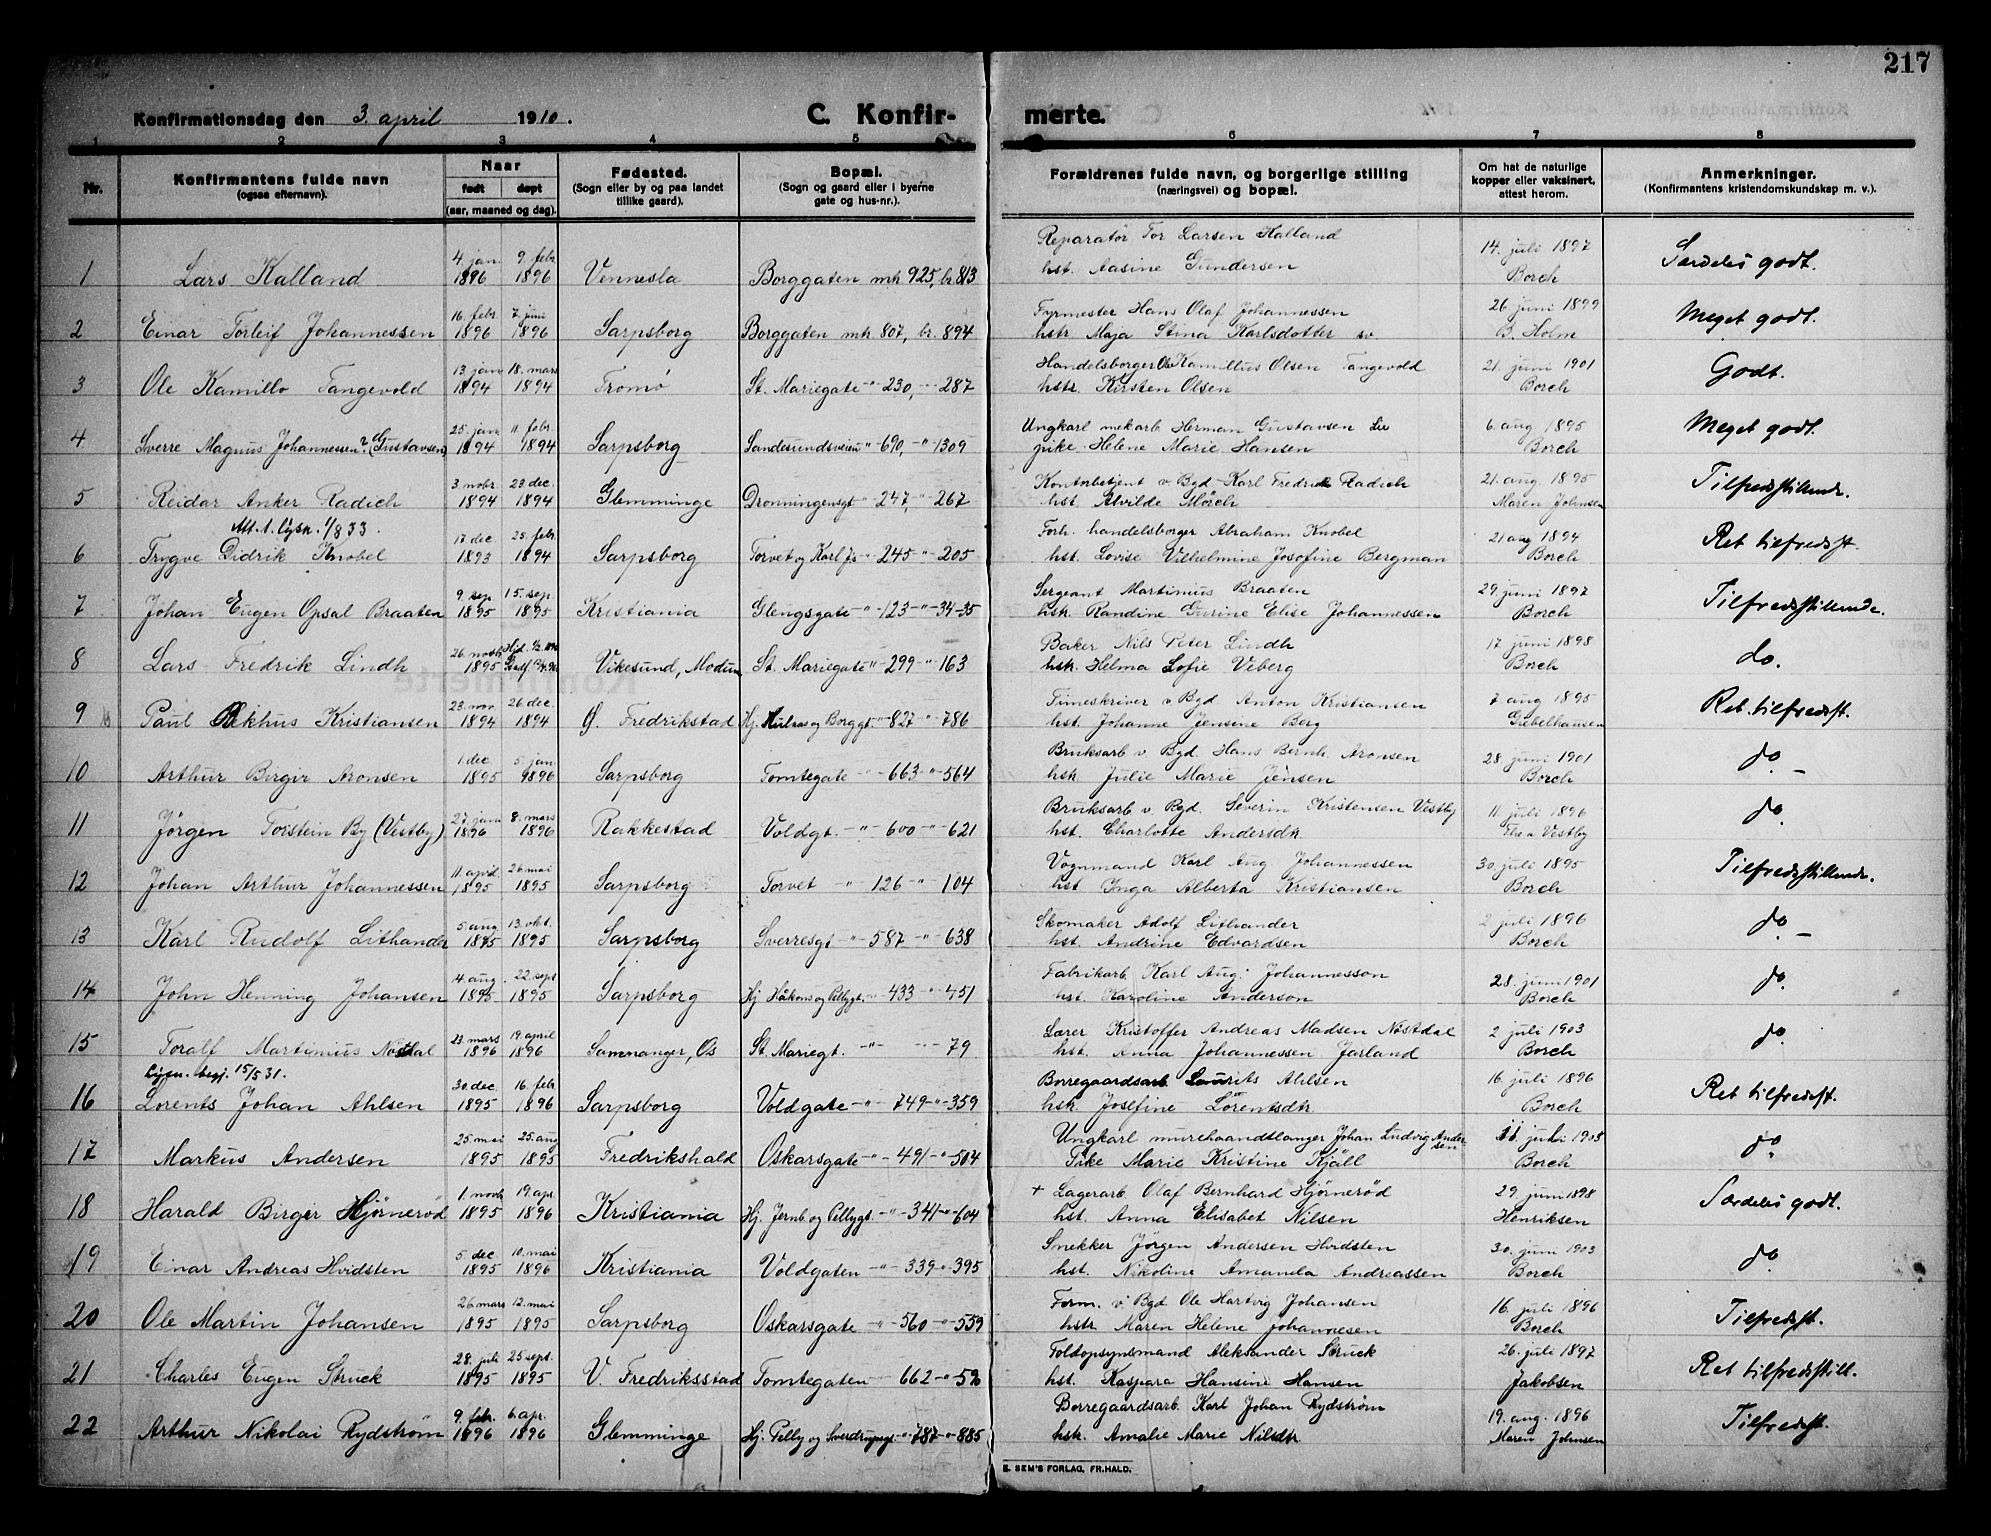 217
Konfirmationsdag den 3. april 1910.
C. Konfirmerte.
1 2 3 4 5 6 7 8
Nr.
Konfirmantens fulde navn
(ogsaa efternavn).
Naar
født døpt
(aar, maaned og dag).
Fødested.
(Sogn eller by og paa landet
tillike gaard).
Bopæl.
(Sogn og gaard eller i byerne
gate og hus-nr.).
Forældrenes fulde navn, og borgerlige stilling
(næringsvei) og bopæl.
Om hat de naturlige
kopper eller vaksinert,
attest herom.
Anmerkninger.
(Konfirmantens kristendomskundskap m. v.).
4 jan. 9. febr. Reparatør Tor Larsen Kalland 14. juli 1897
1 Lars Kalland 1896 1896 Vennesla Borggaten mk 925, br. 813 hst. Aasine Gundersen Borch Særdeles godt.
16. febr 7. juni Fyrmester Hans Olaf Johannessen 26 juni 1899
2 Einar Torleif Johannessen 1896 1896 Sarpsborg Borggaten mk 807, br. 894 hstr Maja Stina Karlsdotter sv B. Holm Meget godt.
13. jan 18. mars Handelsborger Ole Kamillus Olsen Tangevold 21. juni 1901
3 Ole Kamillo Tangevold 1894 1894 Tromø St. Mariegate -"- 230, -"- 287 hstr. Kirsten Olsen Borch Godt.
25. jan 11. febr. Ungkarl mekarb Herman Gustavsen 6. aug 1895
4 Sverre Magnus Johannessen? (Gustavsen) 1894 1894 Sarpsborg Sandesundsveien "- 690, -"- 1309 pike Helene Marie Hansen Borch Meget godt.
3 nobr. 23 dec. Kontorbetjent v Bgd Karl Fredrik Radich 21. aug. 1895
5 Reidar Anker Radich 1894 1894 Glemminge Dronningensgt -"- 247, -"- 267 hst. Alvilde Mörch Maren Johnsen Tilfredsstillende.
Att. t. lysn. 1/8 33.
17 dec 25. febr. Forh. handelsborger Abraham Knobel 21 aug 1894
6 Trygve Didrik Knobel 1893 1894 Sarpsborg Torvet og Karl Js "- 245 -"- 205 hst. Lovise Vilhelmine Josofine Bergman Borch Ret tilfredsst.
9 sep 15. sep Sergeant Martinius Braaten 29. juni 1897
7 Johan Eugen Opsal Braaten 1895 1895 Kristiania Glengsgate "- 123 -"- 34-35 hsk. Randine Gurine Elise Johannessen Borch Tilfredsstillende.
26. novbr Baker Nils Peter Lindh 17 juni 1898
8 Lars Fredrik Lindh 1895 Vikesund, Modum St. Mariegate "- 299 -"- 163 hsk. Helma Sofie Veberg Borch do.
23. nov. 26 dec. Timeskriver v Bgd Anton Kristiansen 7 aug 1895
9 Paul Kristiansen 1894 1894 Ø. Fredrikstad Hj. og Borggt. "- 827 -"- 786 hst. Johanne Jensine Berg Gubelhausen Ret. tilfredsst.
1 dec 5. jan Bruksarb v Bgd Hans Bernh. Aronsen 28. juni 1901
10 Arthur Birgir Aronsen 1895 1896 Sarpsborg Tomtegate -"- 663 -"- 564 hsk. Julie Marie Jensen Borch do. -
27. jan 8. mars Bruksarb v Bgd. Severin Kristensen Vestby 11. juli 1896
11 Jörgen Torstein By (Vestby) 1896 1896 Rakkestad Voldgt. -"- 600 -"- 621 hst. Charlotte Andersdtr. Thea Vestby do.
11. april 26 mai Vognmand Karl Aug Johannessen 30. juli 1895
12 Johan Arthur Johannessen 1895 1895 Sarpsborg Torvet -"- 126 -"- 104 hst Inga Alberta Kristiansen Borch Tilfredsstillende.
5 aug 13. okt. Skomaker Adolf Lithander 2 juli 1896
13 Karl Rudolf Lithander 1895 1895 Sarpsborg Sverresgt -"- 587 -"- 638 hst. Andrine Edvardsen Borch do. -
4. aug. 22. sept Fabrikarb. Karl Aug: Johannesson 28. juni 1901
14 John Henning Johansen 1895 1895 Sarpsborg Hj. Håkons og Pellygt. -"- 433 -"- 451 hst Karoline Anderson Borch do.
23. mars 19. april Lærer Kristoffer Andreas Madsen Nøstdal 2 juli 1903
15 Toralf Martinius Nøstdal 1896 1896 Samnanger, Os St. Mariegt. -"- -"- 79 hst. Anna Johannessen Jarland Borch do.
Lysn. begj. 15/5 31.
30. dec 16. febr Borregaardsarb Laurits Ahlsen 16. juli 1896
16 Lorents Johan Ahlsen 1895 1896 Sarpsborg Voldgate -"- 749 -"- 359 hsk. Josefine Lorentsdtr. Borch Ret tilfredsst.
25. mai 25. aug Ungkarl murehaandtlanger Johan Ludvig Andersen 11. juli 1903
17 Markus Andersen 1895 1895 Fredrikshald Oskarsgate -"- 491 -"- 504 Pike Marie Kristine Kjäll Borch do.
1. novb 19. apr. + Lagerarb. Olaf Bernhard Hjørnerød 29. juni 1898
18 Harald Birger Hjörnerød 1895 1896 Kristiania Hj. Jernb. og Pellygt. -"- 341 -"- 604 hst. Anna Elisabet Nilsen Henriksen Særdeles godt.
5. dec 10. mai Snekker Jörgen Andersen Hvidsten 30. juni 1903
19 Einar Andreas Hvidsten 1895 1896 Kristiania Voldgaten -"- 339 -"- 395 hst. Nikoline Amanda Andreassen Borch do
26 mars 12. mai Form. v Bgd Ole Hartvig Johansen 16. juli 1896
20 Ole Martin Johansen 1895 1895 Sarpsborg Oskarsgate -"- 560 -"- 559 hstr Maren Helene Johannesen Borch Tilfredsst.
28. juli 25 sept. Toldopsynsmand Aleksander Struck 26. juli 1897
21 Charles Eugen Struck 1895 1895 V. Fredriksstad Tomtegaten -"- 662 -"- hst. Kaspara Hansine Hansen Jakobsen Ret tilfredsstill.
9. febr. 6. apr. Borregaardsarb. Karl Johan Rydstrøm 19. aug. 1896
22 Arthur Nikolai Rydstrøm 1896 1896 Glemminge Hj. Pelly og Sverdrupsgt -"- 787 -"- 885 hsk. Amalie Marie Nilsdtr Maren Johnsen Tilfredsst.
E. SEM'S FORLAG, FR.HALD.